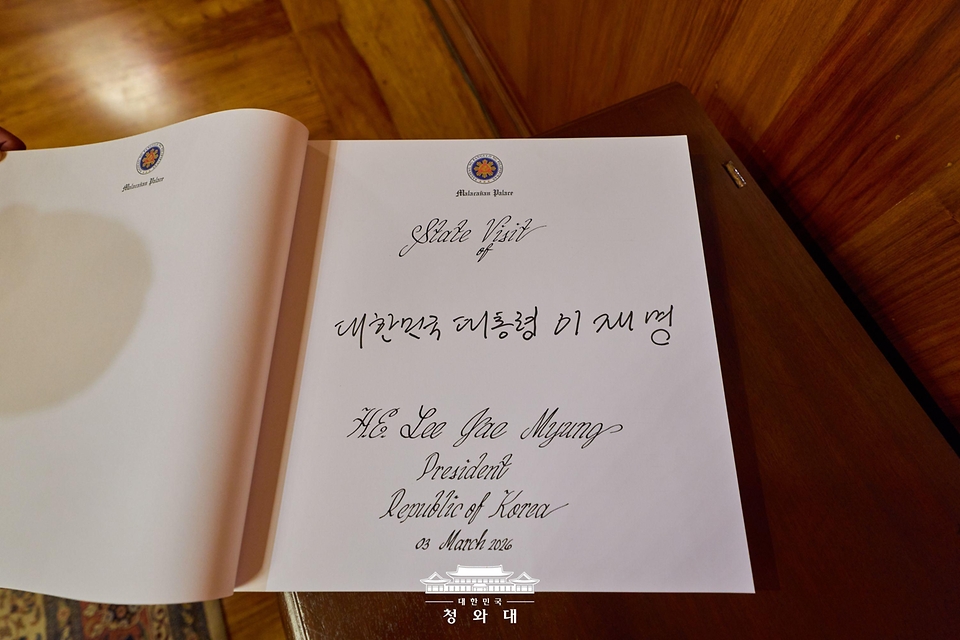 Malacañan Palace
Malacañan Palace
State Visit
of
대한민국 대통령 이재명
H.E. Lee Jae Myung
President
Republic of Korea
03 March 2026
대한민국
청와대